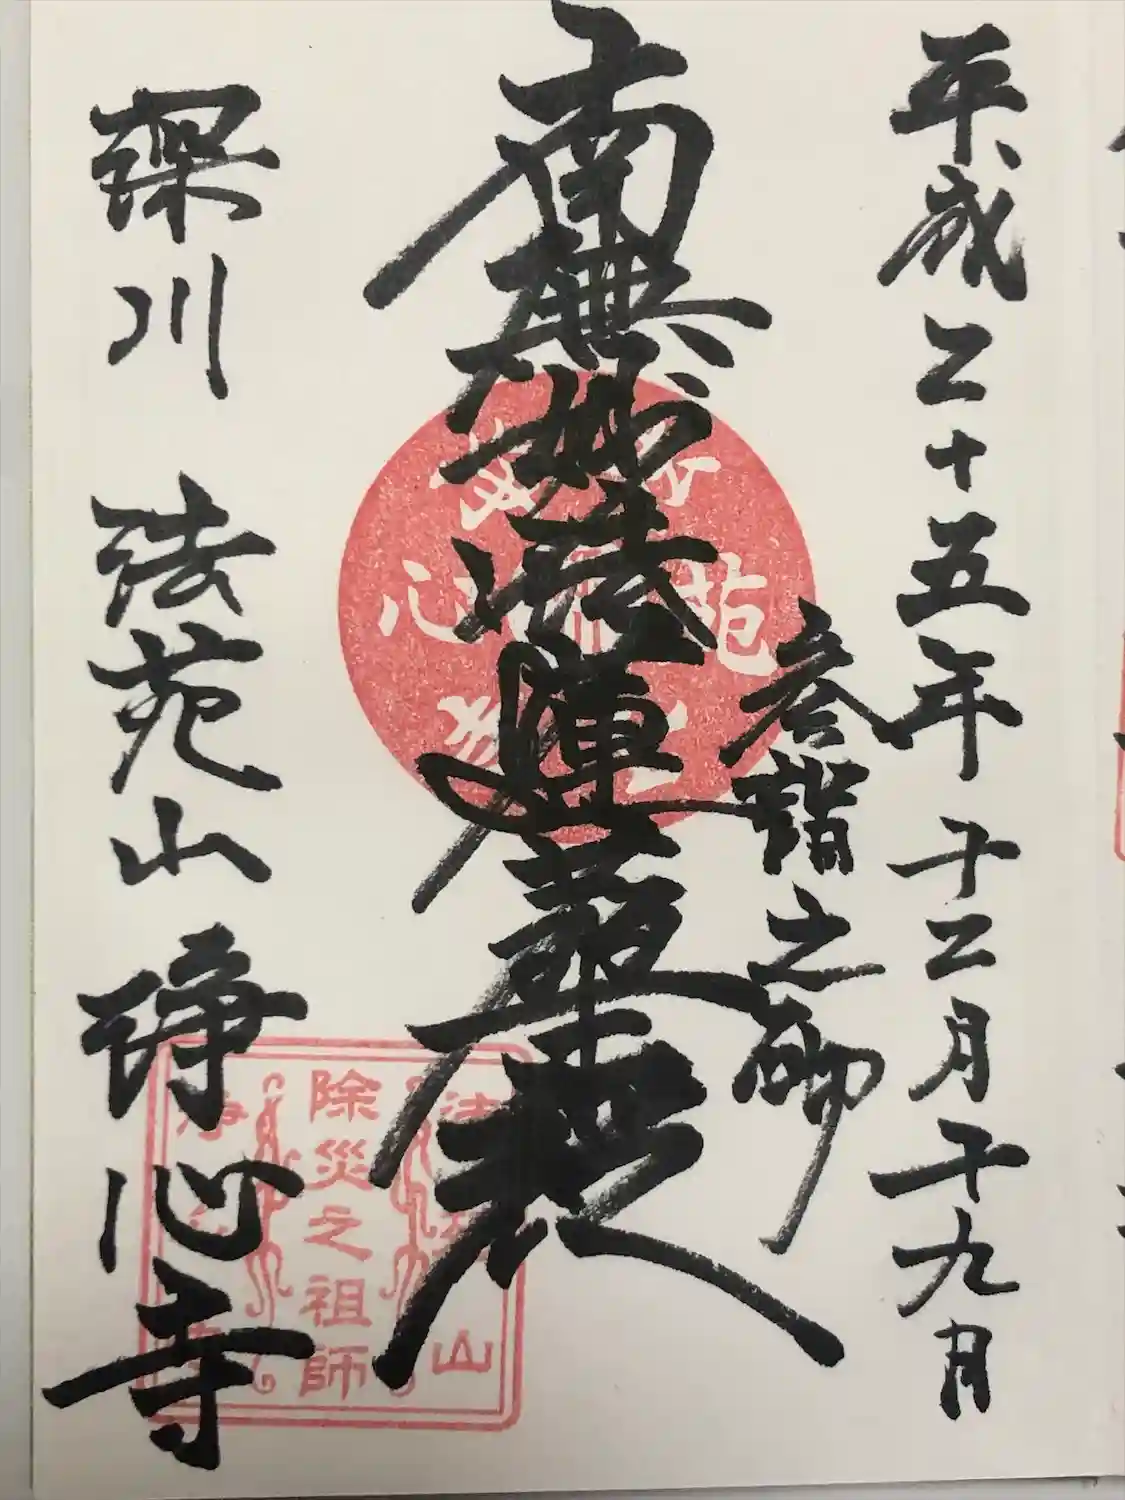 平成二十五年十二月十九日
参詣之砌
南無妙法蓮華経
深川 法苑山 浄心寺
苑
心
除災之祖師
山